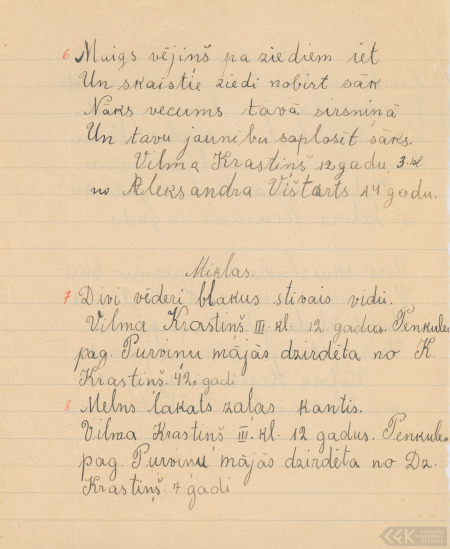 6 Maigs vējiņš pa ziediem iet
Un skaistie ziedi nobirt sāk
Nāks vecums tavā sirsniņā
Un tavu jaunību saplosīt sāks.
Vilma Krastiņš 12 gadu, 3. kl.
no Aleksandra Vīstarts 14 gadu.
Miklas.
7 Divi vēderi blakus stīvais vidū.
Vilma Krastiņš III. kl. 12 gadus. Penkules
pag. Purviņu mājās dzirdēta no K.
Krastiņš. 42. gadi
8 Melns lakats zaļas kantis.
Vilma Krastiņš III. kl. 12 gadus. Penkules
pag. Purviņu mājās dzirdēta no Dz.
Krastiņš. 7 gadi